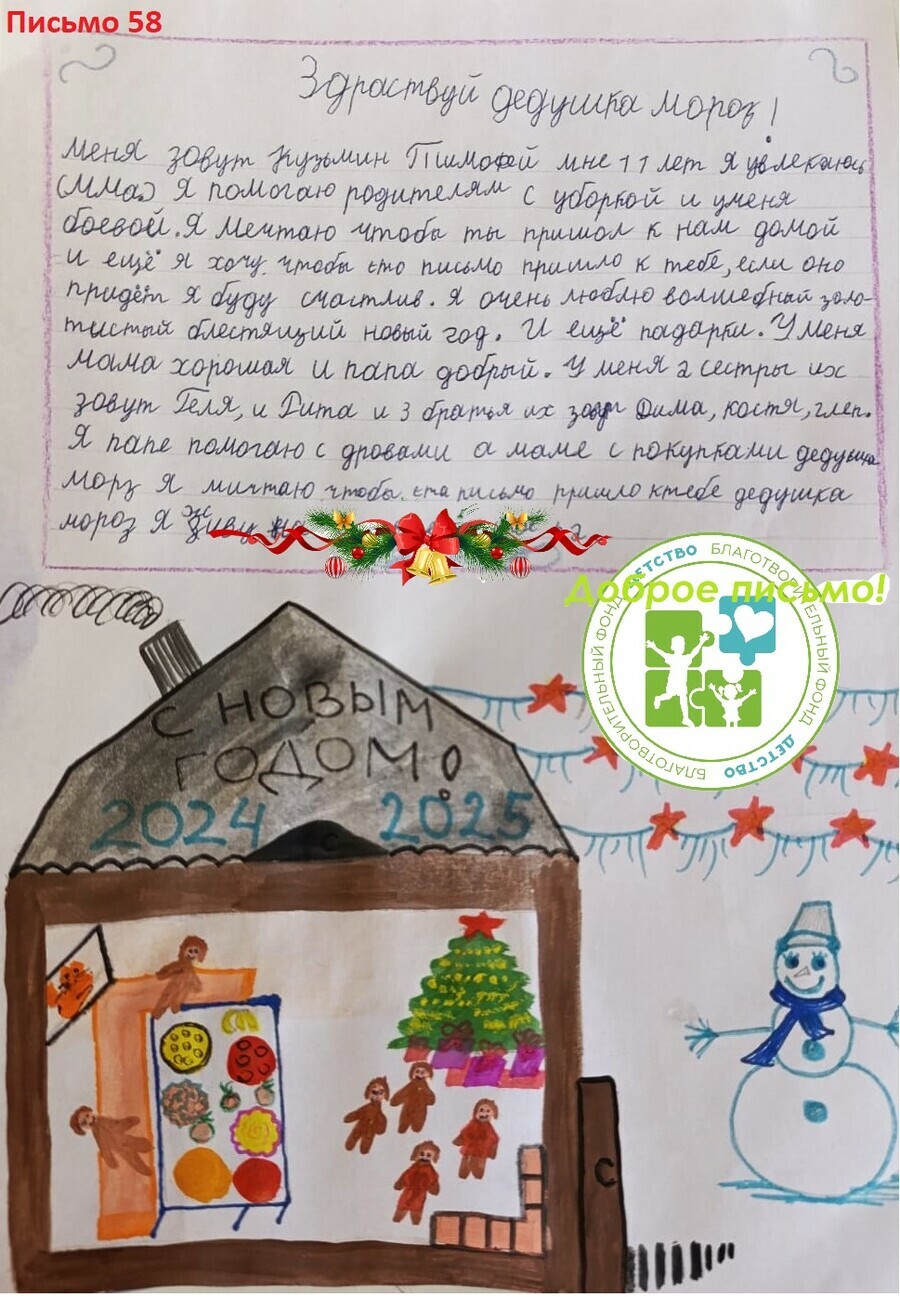 Письмо 58
Здраствуй дедушка мороз!
меня зовут Кузьмин Тимофей мне 11 лет я увлекаюсь
(мма.) Я помогаю родителям с уборкой и уменя
боевой. Я Мечтаю чтобы ты пришол к нам домой
и ещё я хочу чтобы ето письмо пришло к тебе, если оно
придёт я буду счастлив. Я очень люблю волшебный золо-
тистый блестящий новый год. И ещё падарки. У меня
мама хорошая и папа добрый. У меня 2 сестры их
зовут Геля, и Рита и 3 братья их зовут Дима, костя, глеп.
Я папе помогаю с дровами а маме с покупками дедушка
морз я мичтаю чтобы ета письмо пришло ктебе дедушка
мороз я живу
Доброе письмо!
БЛАГОТВОРИТЕЛЬНЫЙ ФОНД ДЕТСТВО БЛАГОТВОРИТЕЛЬНЫЙ ФОНД ДЕТСТВО
С НОВЫМ
ГОДОМ!
2024 2025
С
С